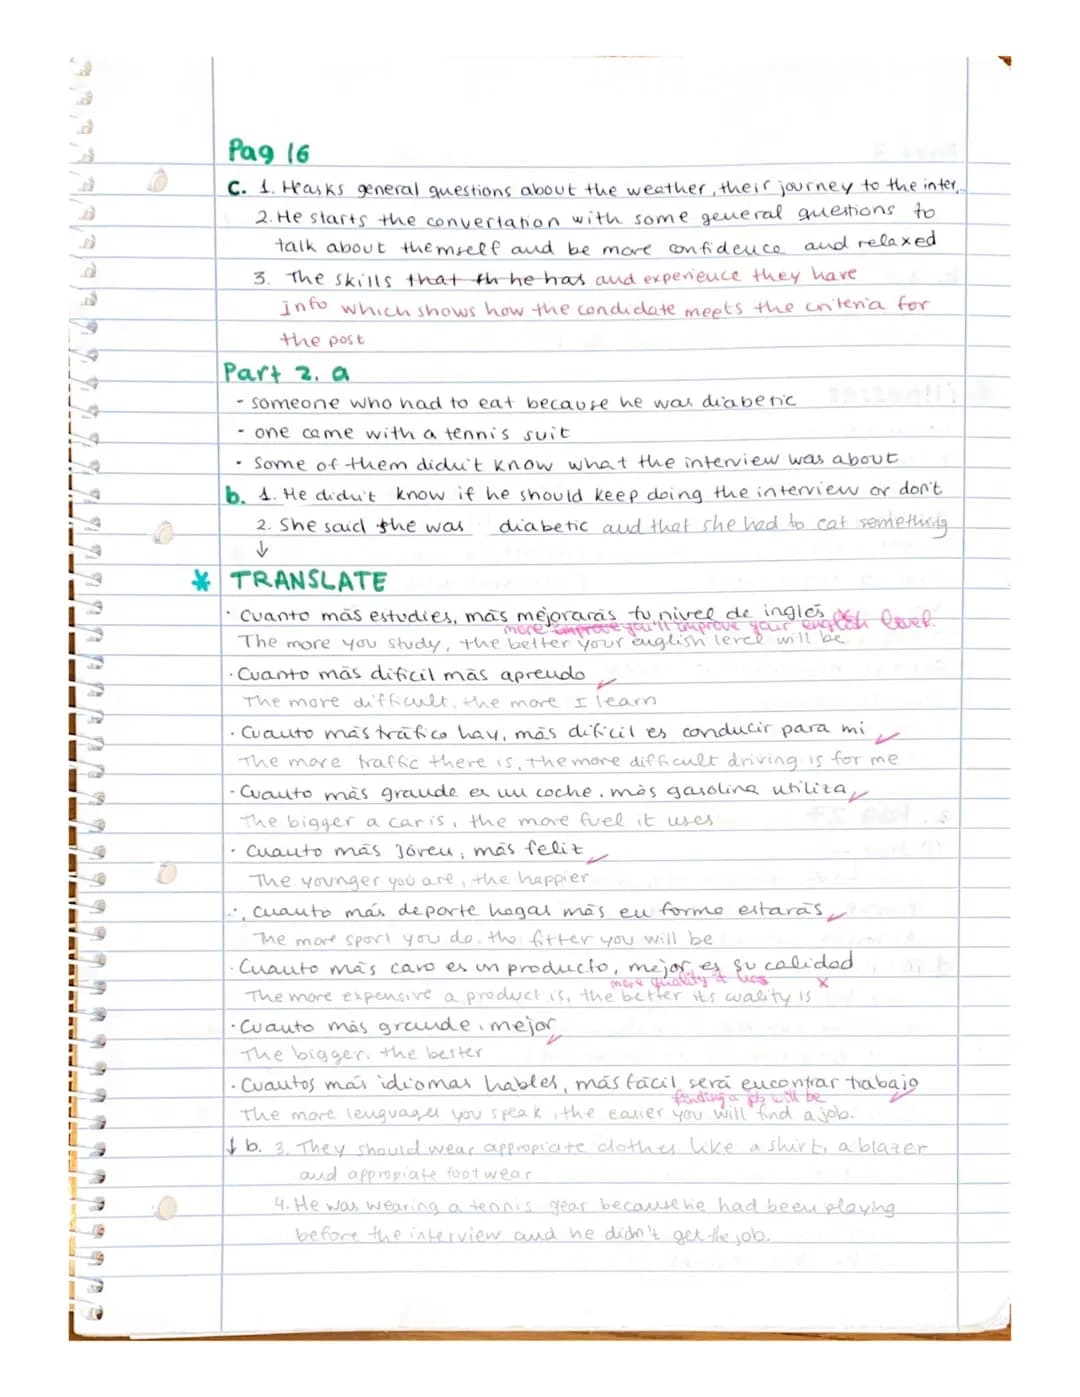 Pag 16
C. 1. He asks general questions about the weather, their journey to the inter,
2. He starts the convertation with some general questions to
talk about themself and be more confidence and relaxed
3. The skills that th he has and experience they have
Info which shows how the candidate meets the criteria for
the post
Part 2. a
- someone who had to eat because he was diabetic
- one came with a tennis suit
- Some of them didn't know what the interview was about
b. 1. He didn't know if he should keep doing the interview or don't
2. She said she was diabetic and that she had to eat something
↓
* TRANSLATE
· Cuanto más estudies, más mejorarás tu nivel de inglés
more improve you'll improve your english level.
The more you study, the better your english level will be
· Cuanto más difícil más aprendo ✓
The more difficult, the more I learn
· Cuanto más tráfico hay, más difícil es conducir para mi ✓
The more traffic there is, the more difficult driving is for me
· Cuanto más grande es un coche, más gasolina utiliza ✓
The bigger a car is, the more fuel it uses
· Cuanto más jóven, más feliz ✓
The younger you are, the happier
· Cuanto más deporte hagas más en forma estarás ✓
The more sport you do, the fitter you will be
· Cuanto más caro es un producto, mejor es su calidad
more quality it has x
The more expensive a product is, the better its cuality is
· Cuanto más grande, mejor ✓
The bigger, the better
· Cuantos más idiomas hables, más fácil será encontrar trabajo ✓
finding a job will be
The more lenguages you speak, the easier you will find a job.
↓ b. 3. They should wear appropiate clothes like a shirt, a blazer
and appropiate footwear
4. He was wearing a tennis gear because he had been playing
before the interview and he didn't get the job.